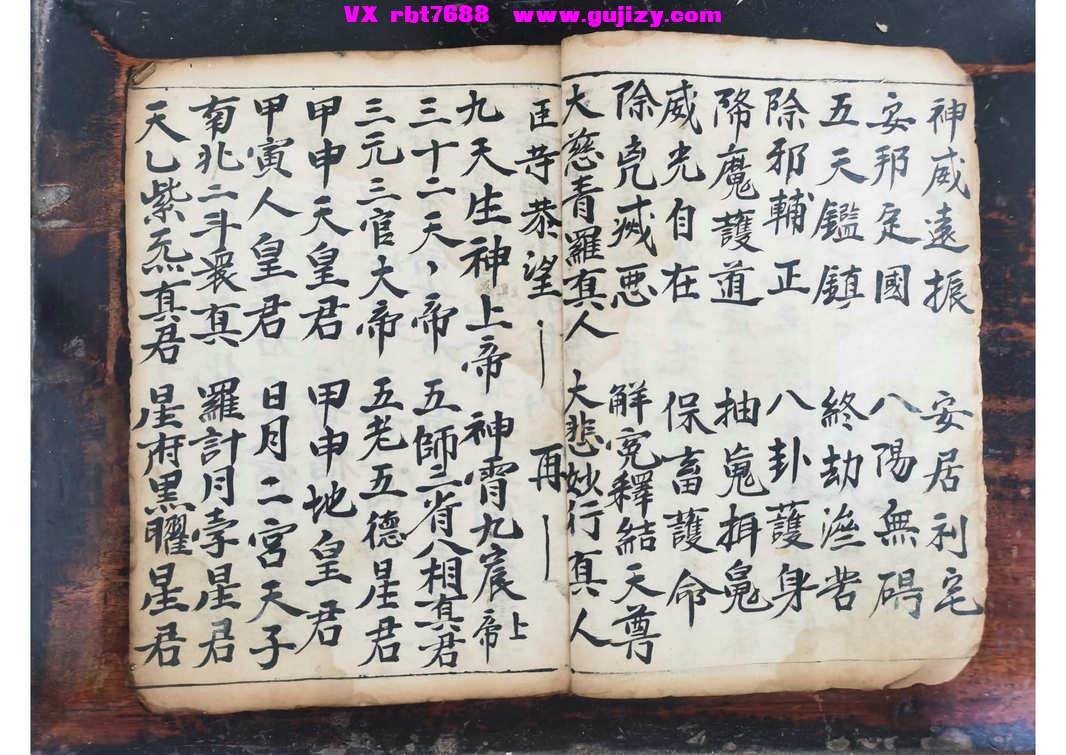 VX rbt7688 www.gujizy.com
神威遠振 安居利宅
安邦定國 八陽無碍
五天鑑鎮 終劫
除邪輔正 八卦護身
降魔護道 抽魂
威光自在 保畜護命
除兇滅惡 解冤釋結天尊
大慈青羅真人 大悲妙行真人
臣等恭望 再
九天生神上帝 神霄九宸上帝
三十二天帝 五師三省八相真君
三元三官大帝 五老五德星君
甲申天皇君 甲申地皇君
甲寅人皇君 日月二宮天子
南北二斗衆真 羅計月孛星君
天乙紫炁真君 星府黑曜星君